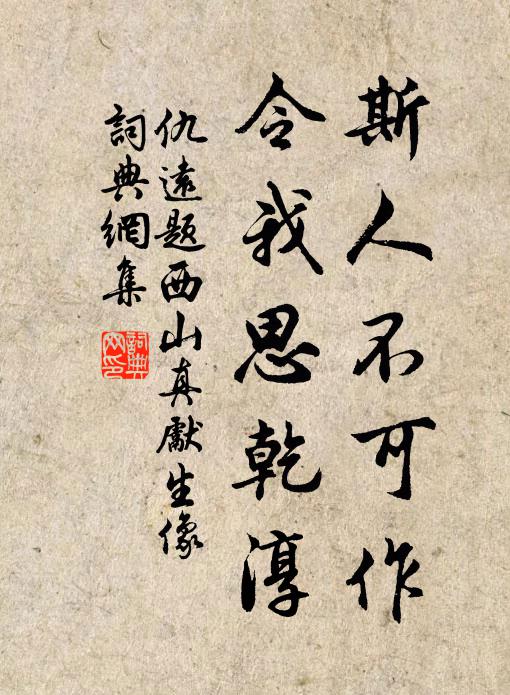 斯人不可作
令我思乾淳
仇遠題西山真獻生像
詞典網集
詞典網印